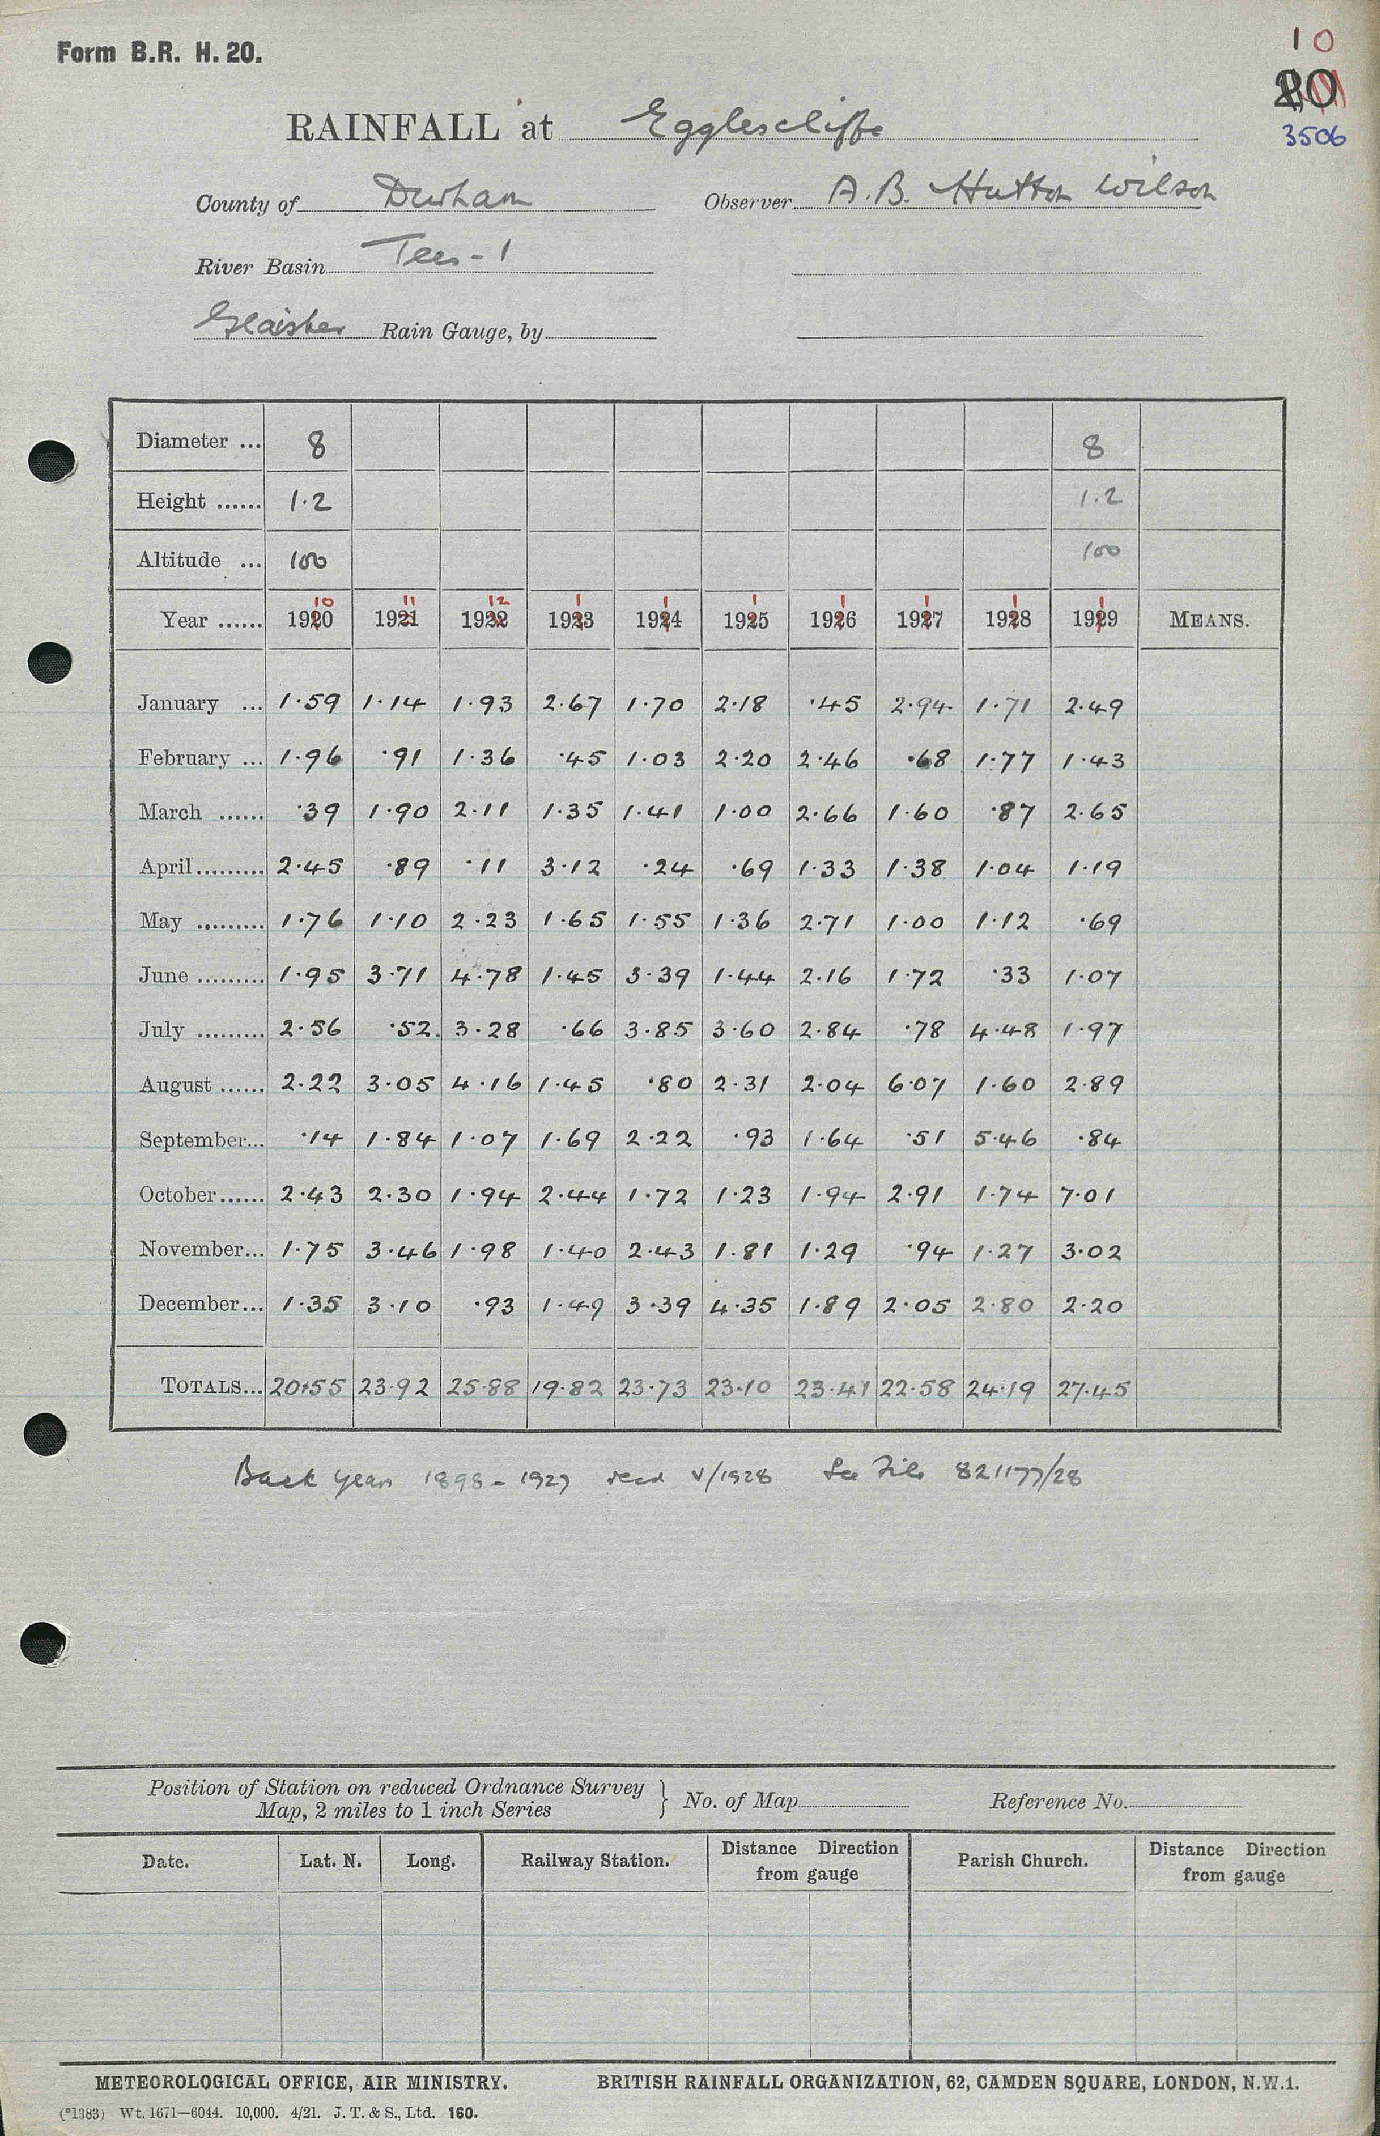 Form B.R. H. 20.
10
20
3506
RAINFALL at Egglescliffe
County of Durham Observer A.B. Hutton Wilson
River Basin Tees - 1
Glaisher Rain Gauge, by
Diameter ... 8 8
Height ...... 1.2 1.2
Altitude ... 100 100
10 11 12 1 1 1 1 1 1 1
Year ...... 1920 1921 1922 1923 1924 1925 1926 1927 1928 1929 MEANS.
January ... 1.59 1.14 1.93 2.67 1.70 2.18 .45 2.94 1.71 2.49
February ... 1.96 .91 1.36 .45 1.03 2.20 2.46 .68 1.77 1.43
March ...... .39 1.90 2.11 1.35 1.41 1.00 2.66 1.60 .87 2.65
April ......... 2.45 .89 .11 3.12 .24 .69 1.33 1.38 1.04 1.19
May ......... 1.76 1.10 2.23 1.65 1.55 1.36 2.71 1.00 1.12 .69
June ......... 1.95 3.71 4.78 1.45 3.39 1.44 2.16 1.72 .33 1.07
July ......... 2.56 .52 3.28 .66 3.85 3.60 2.84 .78 4.48 1.97
August ...... 2.22 3.05 4.16 1.45 .80 2.31 2.04 6.07 1.60 2.89
September... .14 1.84 1.07 1.69 2.22 .93 1.64 .51 5.46 .84
October...... 2.43 2.30 1.94 2.44 1.72 1.23 1.94 2.91 1.74 7.01
November... 1.75 3.46 1.98 1.40 2.43 1.81 1.29 .94 1.27 3.02
December... 1.35 3.10 .93 1.49 3.39 4.35 1.89 2.05 2.80 2.20
TOTALS... 20.55 23.92 25.88 19.82 23.73 23.10 23.41 22.58 24.19 27.45
Back years 1898 - 1927 recd V/1928 See File 821177/28
Position of Station on reduced Ordnance Survey
Map, 2 miles to 1 inch Series } No. of Map Reference No.
Date. Lat. N. Long. Railway Station. Distance Direction from gauge Parish Church. Distance Direction from gauge
METEOROLOGICAL OFFICE, AIR MINISTRY. BRITISH RAINFALL ORGANIZATION, 62, CAMDEN SQUARE, LONDON, N.W.1.
(*1383) Wt. 1671—6044. 10,000. 4/21. J. T. & S., Ltd. 160.